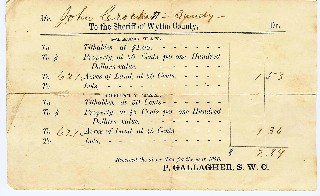 Mr. John Crockett
To the Sheriff of Wythe County, Dr.
To Tithables at
To Property at 25 Cents per one Hundred
Dollars value.
To 621 Acres of Land, at 25 Cents 1 53
To Lots,
To Tithables at 50 Cents
To Property at Cents per one Hundred
Dollars value.
To 621 Acres of Land at Cents 1 36
To Lots,
$ 2.89
Received the above
P. GALLAGHER, S. W. C.